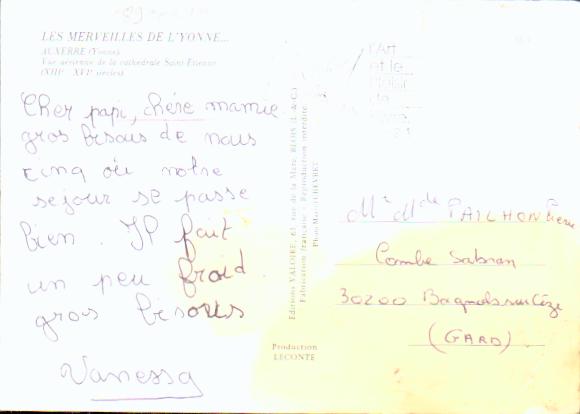 LES MERVEILLES DE L'YONNE...
AUXERRE (Yonne)
Vue aérienne de la cathédrale Saint-Etienne
(XIIIe - XVIe siècles)
Cher papi, chère mamie
gros bisous de nous
cinq où notre
sejour se passe
bien. Il fait
un peu froid
gros bisous
Vanessa
Editions VALOIRE, 63, rue de la Mare, BLOIS (L.-&-C.)
Fabrication française - Reproduction interdite
Production
LECONTE
l'Art
et le
Plaisir
de
Mr Mde PAILHON
Combe Sabran
30200 Bagnols sur Cèze
(GARD)